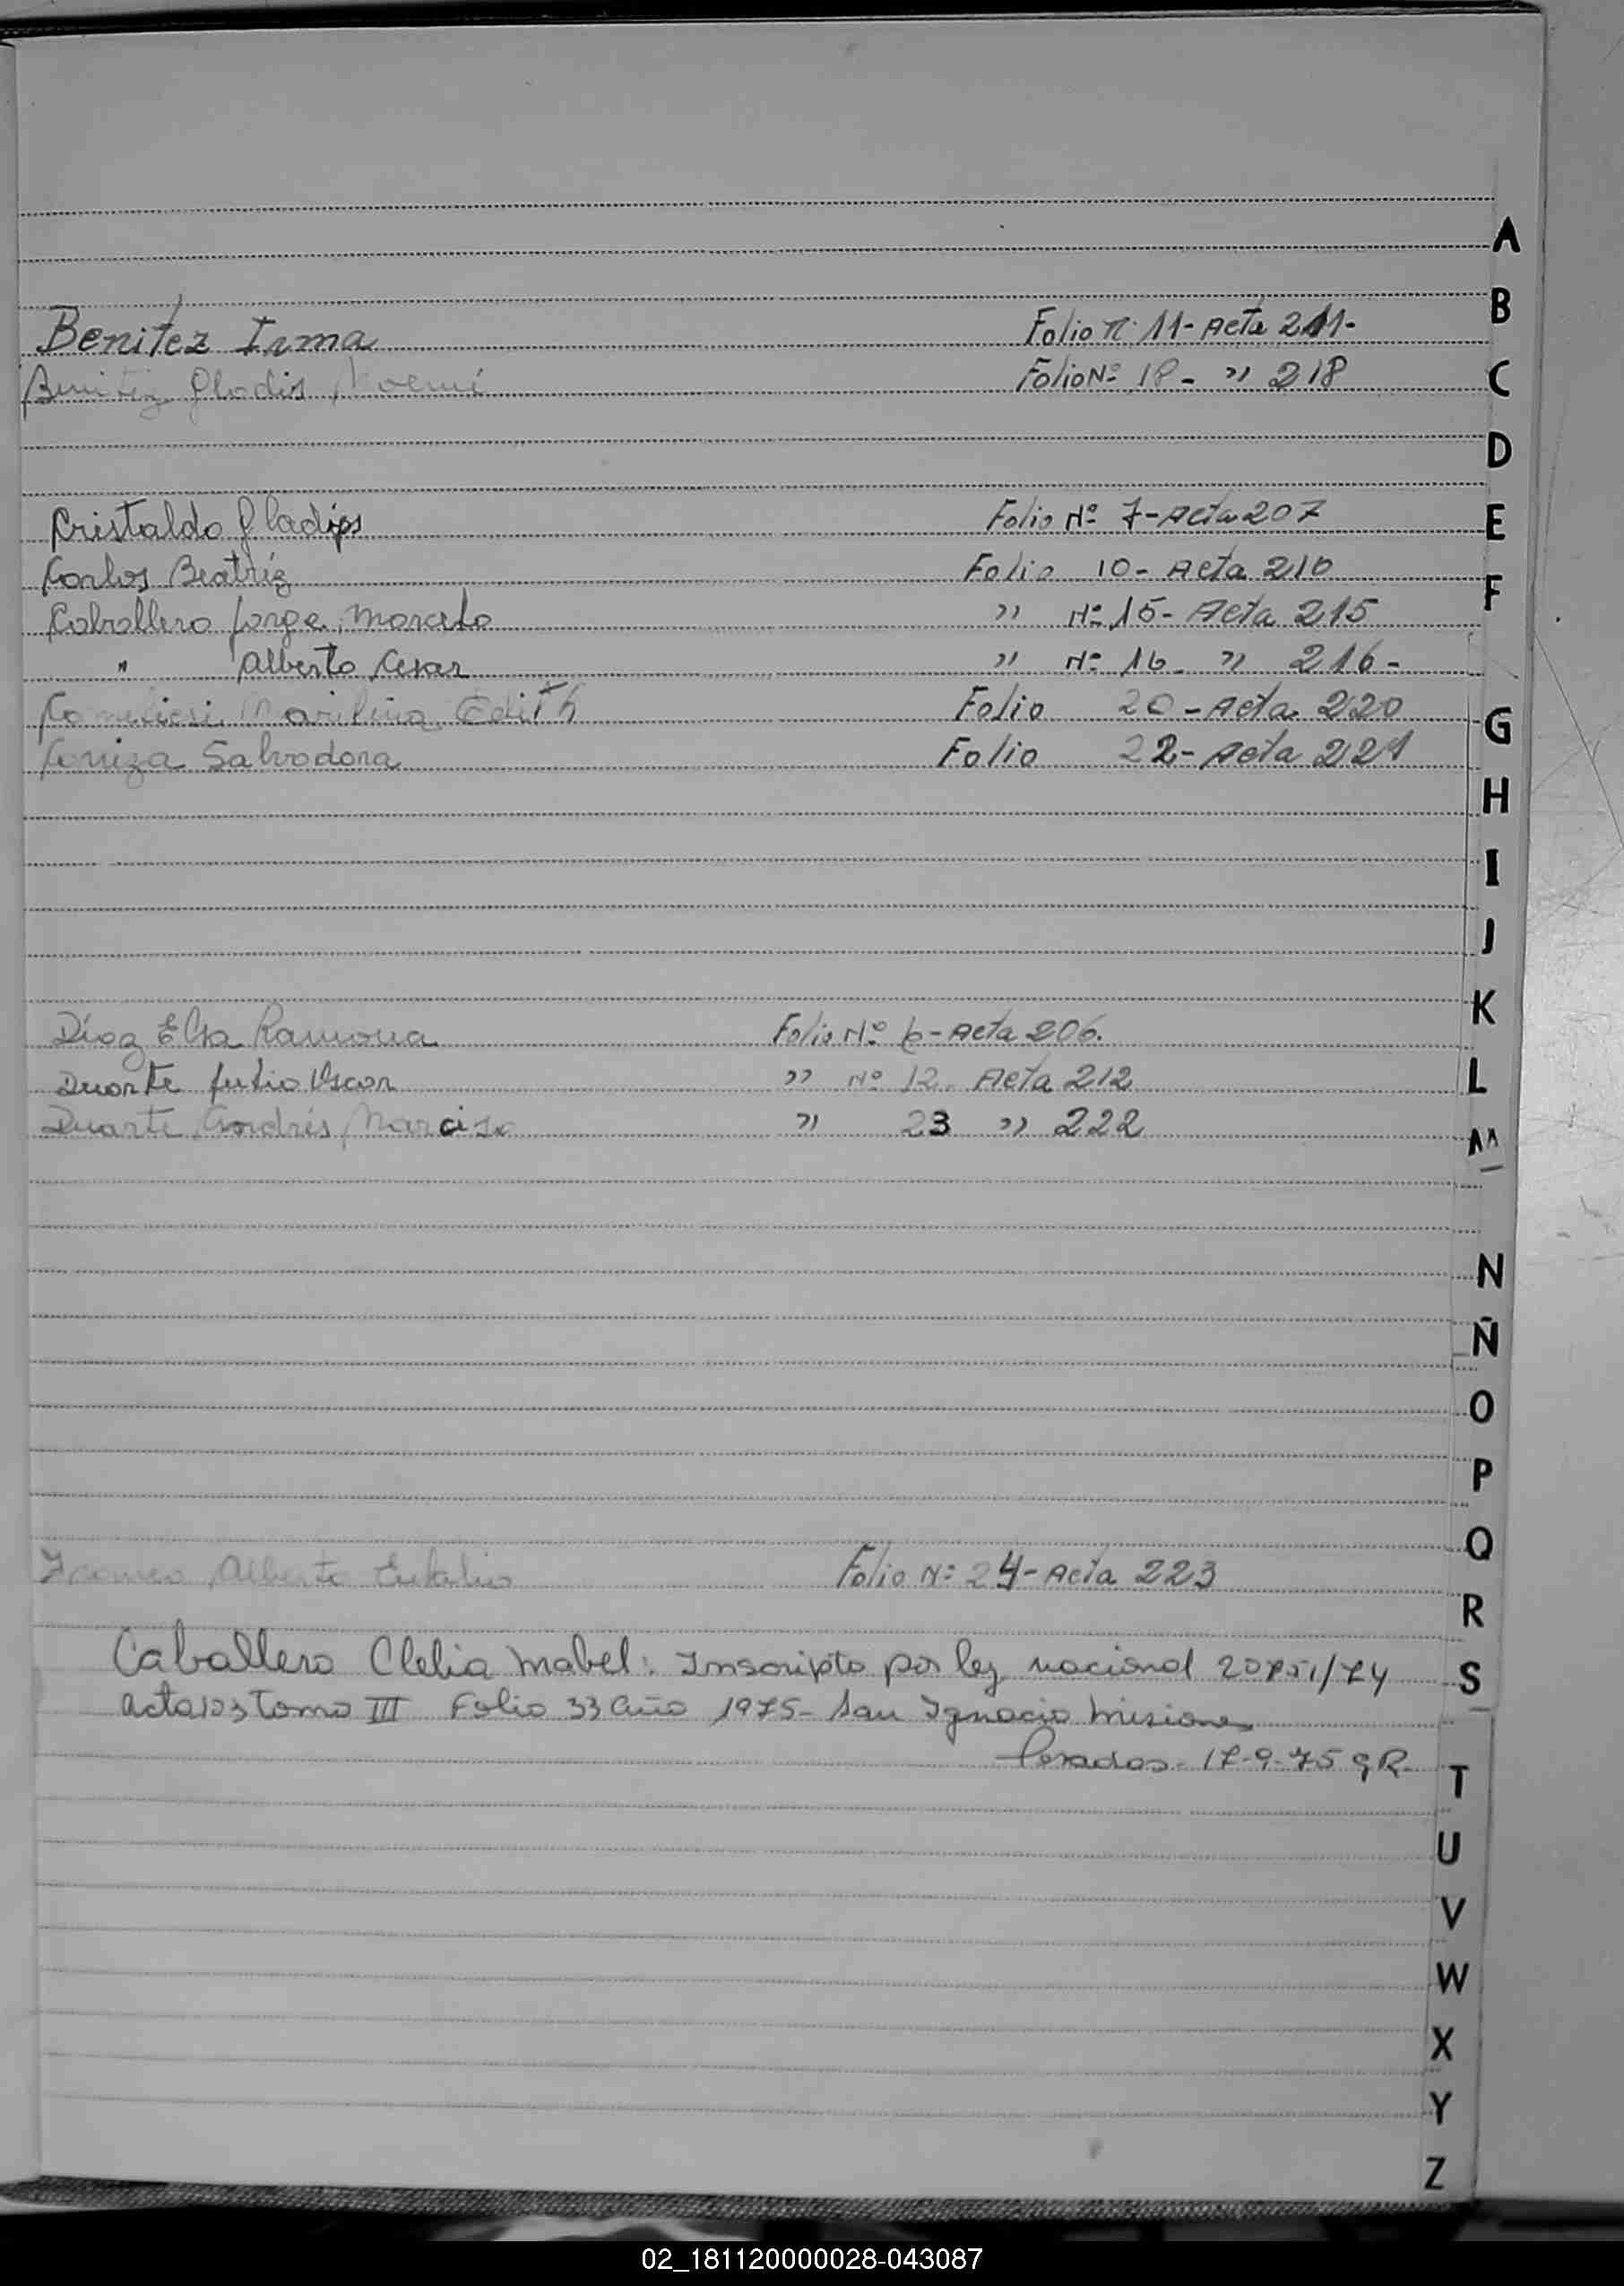 A
B
Benitez Irma Folio Nº 11- Acta 211-
Benitez Gladis Noemí Folio Nº 18- " 218
C
D
Cristaldo Gladys Folio Nº 7- Acta 207
E
Carlos Beatriz Folio 10- Acta 210
F
Caballero Jorge Marcelo " Nº 15- Acta 215
" Alberto Cesar " Nº 16- " 216-
Marilina Edith Folio 20- Acta 220
G
Salvadora Folio 22- Acta 221
H
I
J
K
Díaz Elsa Ramona Folio Nº 6- Acta 206.
L
Duarte Julio Oscar " Nº 12. Acta 212
Duarte Andrés Narciso " 23 " 222
M
N
Ñ
O
P
Q
Alberto Eulalio Folio Nº 24- Acta 223
R
Caballero Clelia Mabel: Inscripto por ley nacional 20751/74
S
acta 123 Tomo III Folio 33 año 1975- San Ignacio Misiones
Posadas- 17-9-75 g R-
T
U
V
W
X
Y
Z
02_181120000028-043087